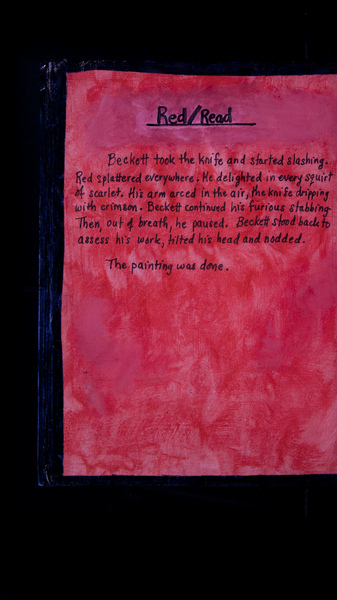 Red/Read
Beckett took the knife and started slashing.
Red splattered everywhere. He delighted in every squirt
of scarlet. His arm arced in the air, the knife dripping
with crimson. Beckett continued his furious stabbing.
Then, out of breath, he paused. Beckett stood back to
assess his work, tilted his head and nodded.
The painting was done.